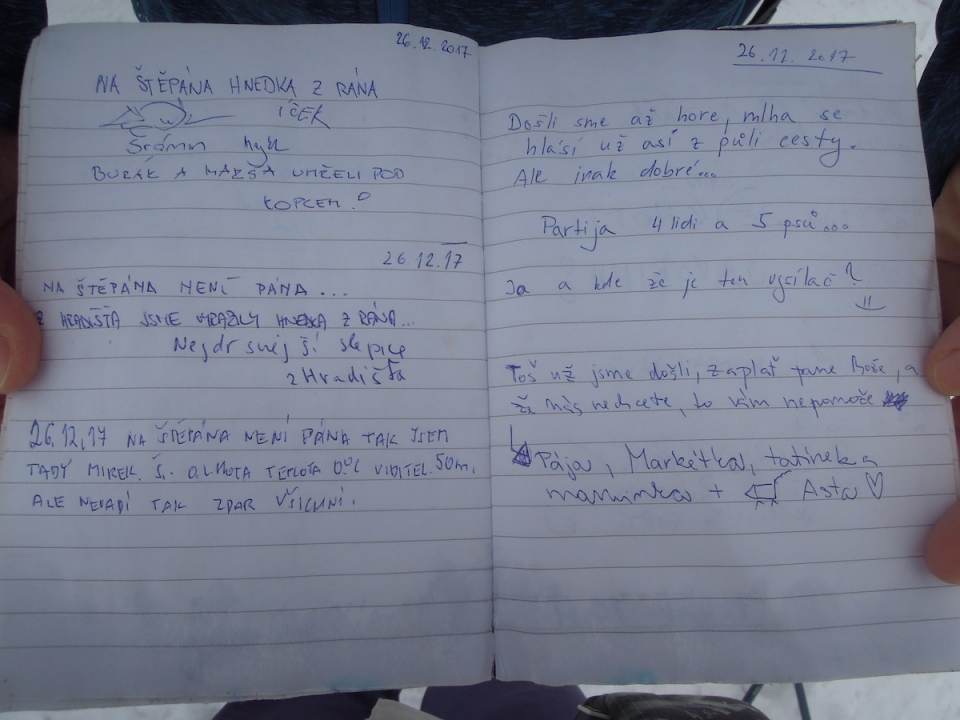 26.12.2017
NA ŠTĚPÁNA HNEDKA Z RÁNA
ÍČEK
BURÁK A MAŔŠA UMŔELI POD
KOPCEM.
26.12.17
NA ŠTĚPÁNA NENÍ PÁNA...
Z HRADIŠŤA JSME VYRAZILY HNEDKA Z RÁNA...
Nejdrsnější slepice
z Hradišťa
26,12,17 NA ŠTĚPÁNA NENÍ PÁNA TAK JSEM
TADY MIREK. Š. OLMOTA TEPLOTA 0°C VIDITEL. 50m.
ALE NEVADÍ TAK ZDAR VŠICHNI.
26.12.2017
Došli sme až hore, mlha se
hlásí už asi z půli cesty.
Ale inak dobré...
Partija 4 lidi a 5 psů...
Ja a kde že je ten vysílač?
Toš už jsme došli, zaplať pane Bože, a
že nás nechcete, to vám nepomože
Pája, Markétka, tatínek a
maminka + Asta ♡